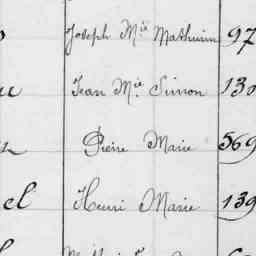 Joseph Mie Mathurin 97
Jean Mie Simon 130
Pierre Marie 569
el Henri Marie 139